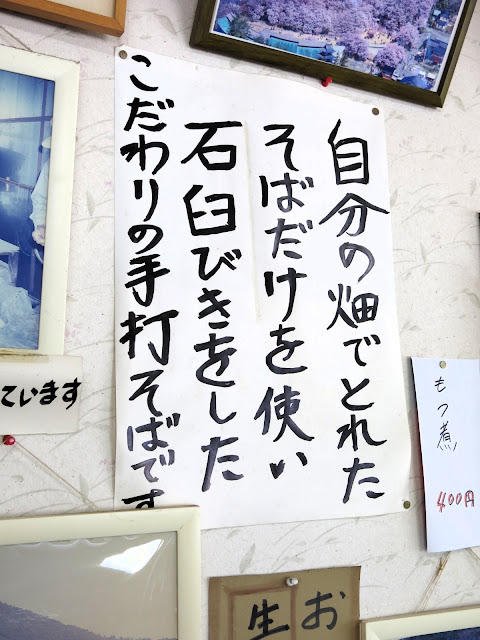 自分の畑でとれた
そばだけを使い
石臼びきをした
こだわりの手打そばです
もつ煮
400円
ています
お
生